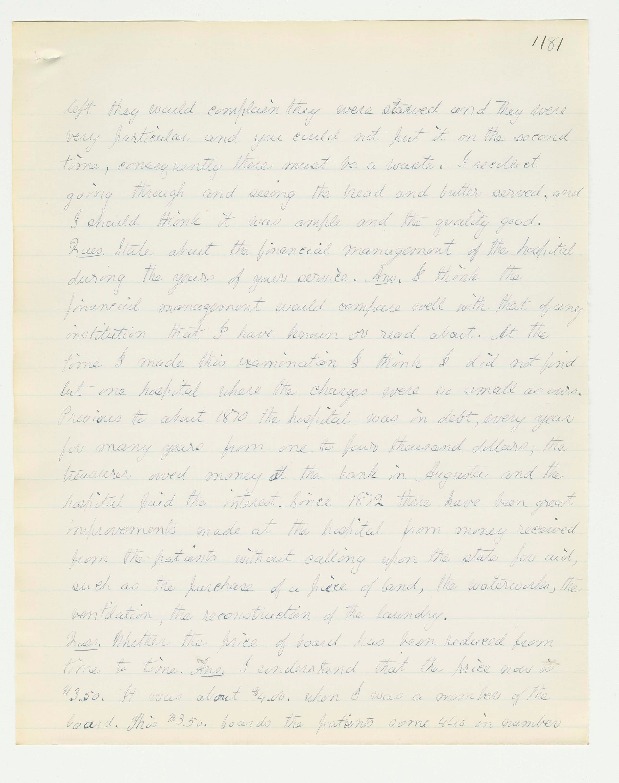 1181
left they would complain they were starved and they were
very particular and you could not put it on the second
time, consequently there must be a waste. I recollect
going through and seeing the bread and butter served, and
I should think it was ample and the quality good.
Ques. State about the financial management of the hospital
during the years of your service. Ans. I think the
financial management would compare well with that of any
institution that I have known or read about. At the
time I made this examination I think I did not find
but one hospital where the charges were so small as ours.
Previous to about 1870 the hospital was in debt, every year
for many years from one to four thousand dollars; the
treasurer owed money at the bank in Augusta and the
hospital paid the interest. Since 1872 there have been great
improvements made at the hospital from money received
from the patients without calling upon the state for aid,
such as the purchase of a piece of land, the waterworks, the
ventilation, the reconstruction of the laundry.
Ques. Whether the price of board has been reduced from
time to time. Ans. I understand that the price now is
$3.50. It was about $4.00. when I was a member of the
board. This $3.50. boards the patients some in number